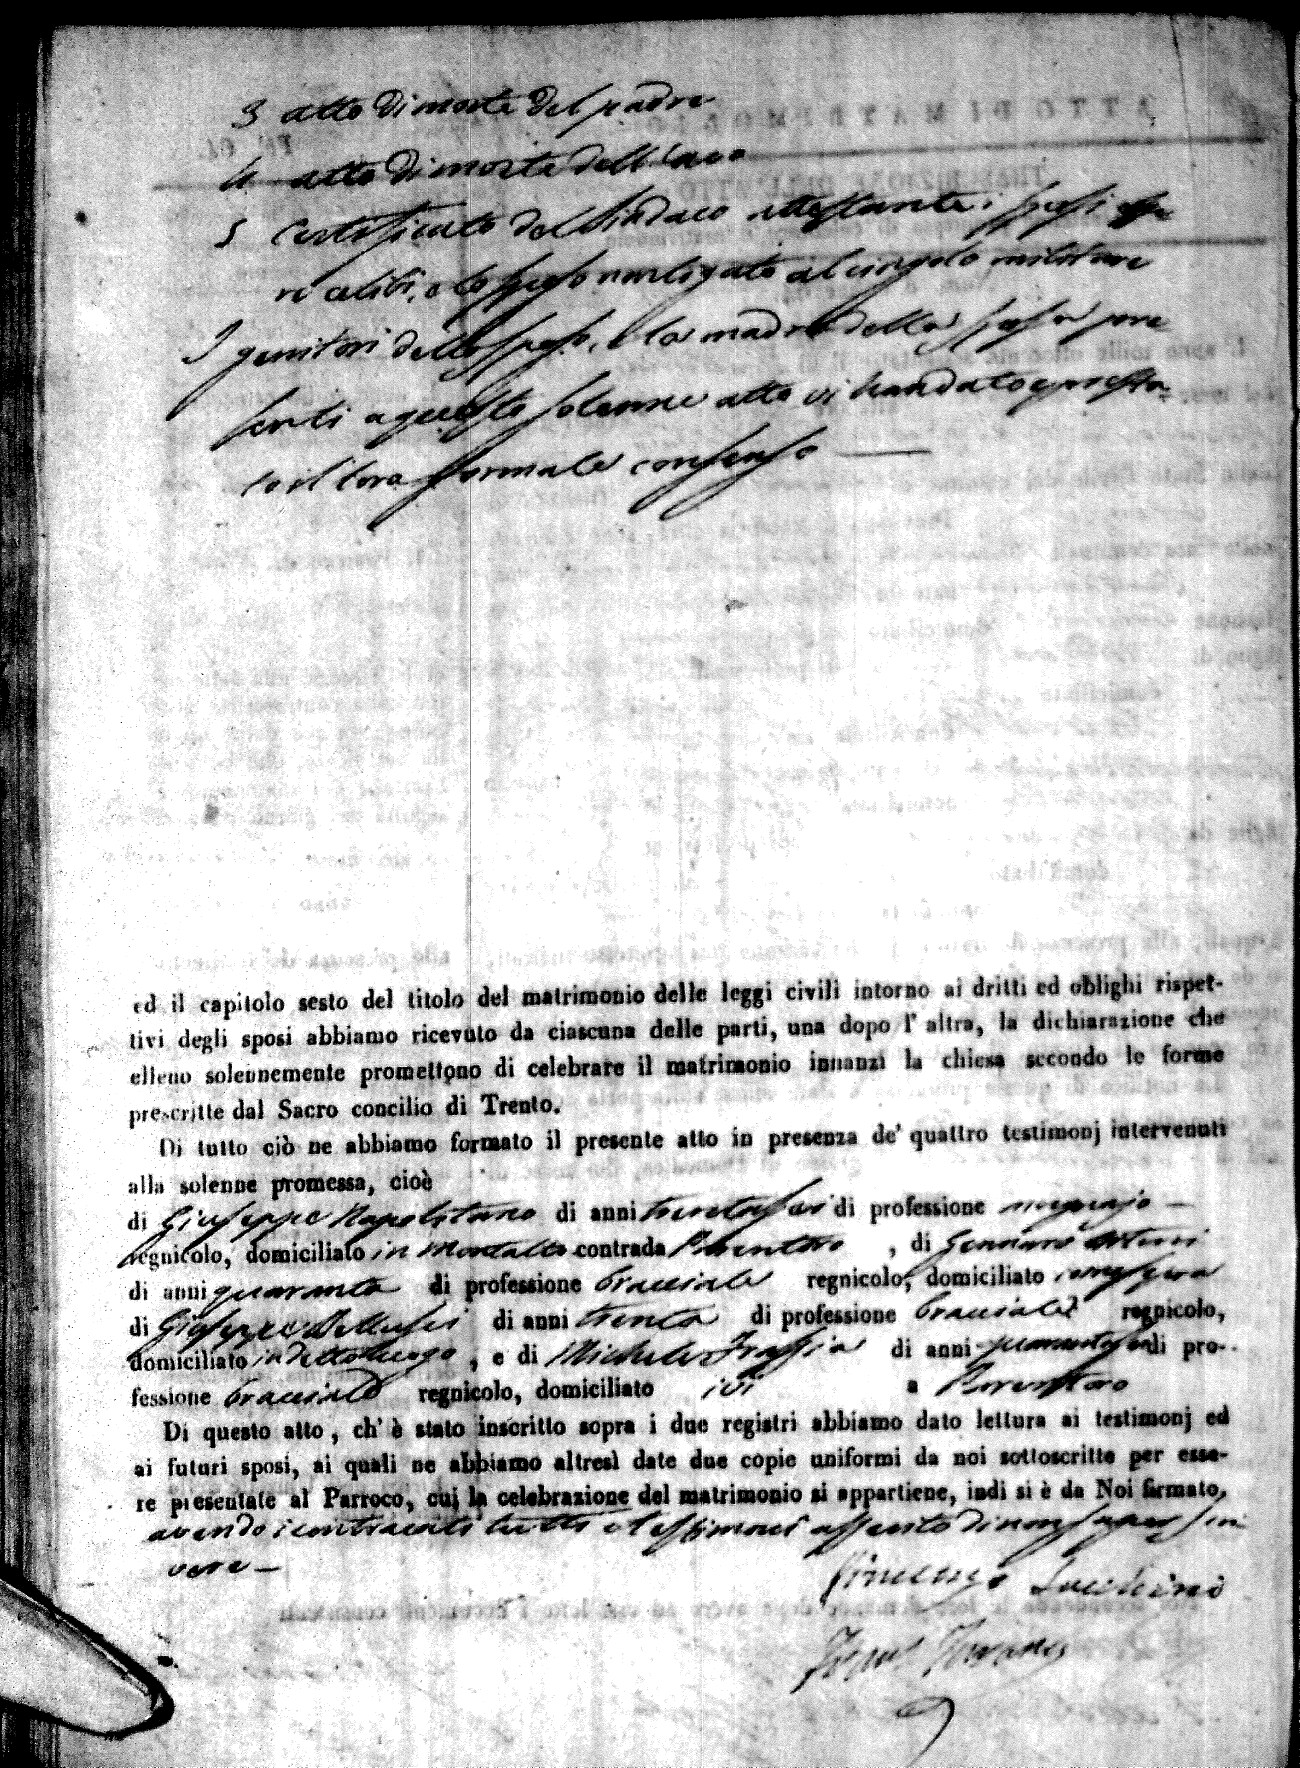 3 atto di morte del padre
4 atto di morte dell'avo
5 Certificato del Sindaco attestante i sposi esse
re celibi, e lo sposo non ligato al cingolo militare
I genitori dello sposo, e la madre della sposa pre
senti a questo solenne atto vi han dato e presta
to il loro formale consenso
ed il capitolo sesto del titolo del matrimonio delle leggi civili intorno ai dritti ed oblighi rispet-
tivi degli sposi abbiamo ricevuto da ciascuna delle parti, una dopo l'altra, la dichiarazione che
elleno solennemente promettono di celebrare il matrimonio innanzi la chiesa secondo le forme
prescritte dal Sacro concilio di Trento.
Di tutto ciò ne abbiamo formato il presente atto in presenza de' quattro testimonj intervenuti
alla solenne promessa, cioè
di Giuseppe Napolitano di anni trentasei di professione
regnicolo, domiciliato in Montalto contrada , di Gennaro
di anni quaranta di professione bracciale regnicolo, domiciliato
di Giuseppe Bellusci di anni trenta di professione bracciale regnicolo,
domiciliato in detto luogo , e di Michele di anni di pro-
fessione bracciale regnicolo, domiciliato ivi a
Di questo atto, ch' è stato inscritto sopra i due registri abbiamo dato lettura ai testimonj ed
ai futuri sposi, ai quali ne abbiamo altresì date due copie uniformi da noi sottoscritte per esse-
re presentate al Parroco, cui la celebrazione del matrimonio si appartiene, indi si è da Noi firmato,
avendo i contraenti tutti e testimoni asserito di non saper scri
vere